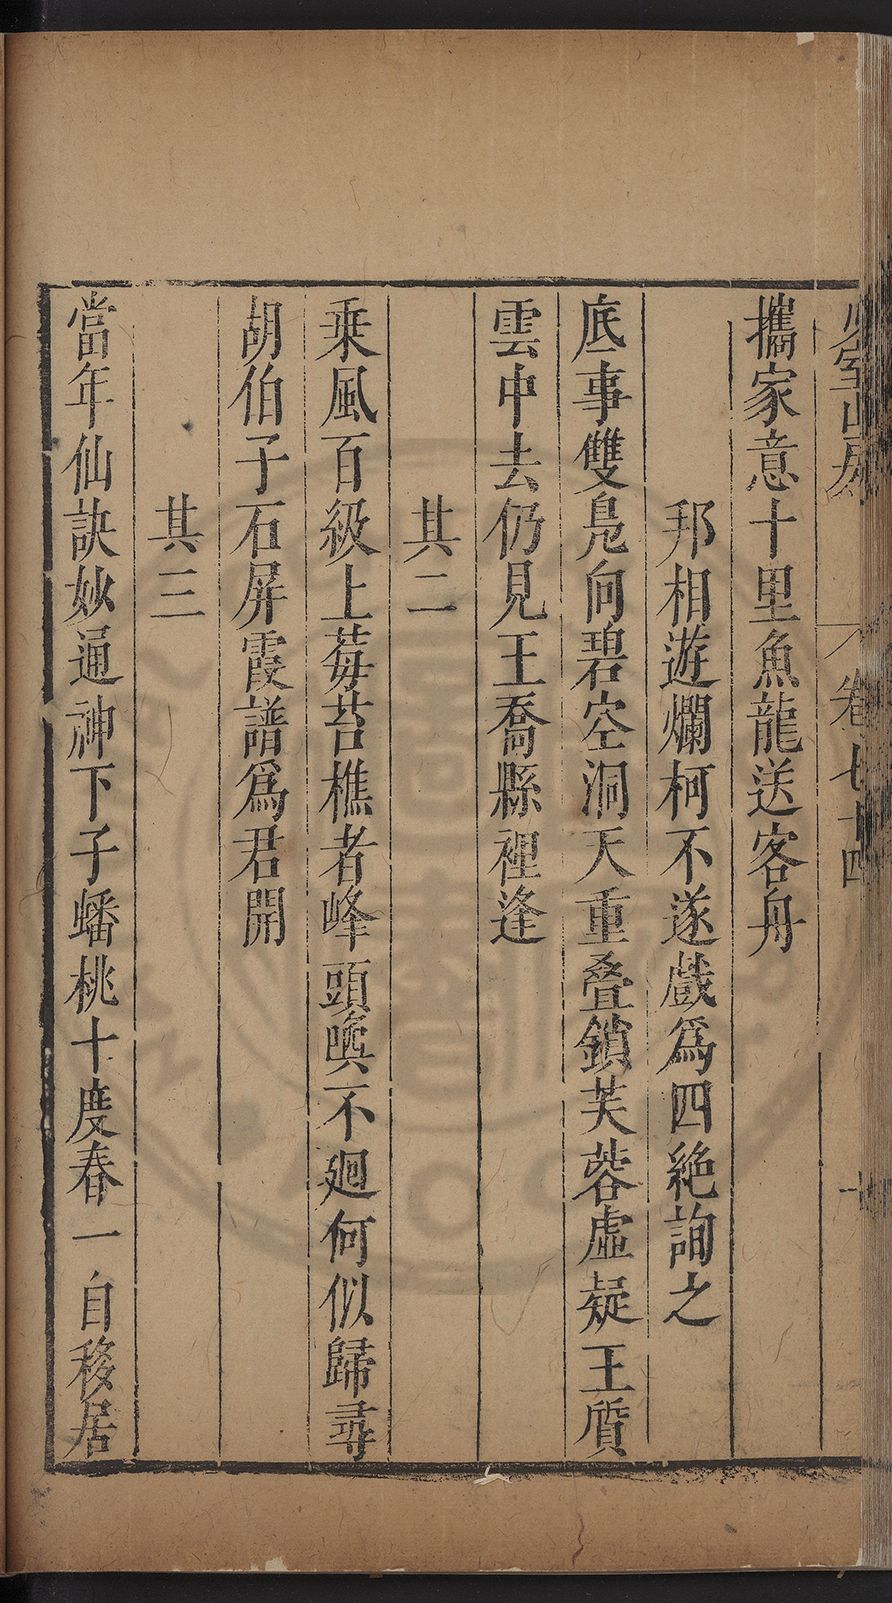 少室山房
卷七十四
十
攜家意十里魚龍送客舟
邦相遊爛柯不遂戲爲四絶詢之
底事雙鳧向碧空洞天重疊鎖芙蓉虛疑王質
雲中去仍見王喬縣裡逢
其二
乗風百級上莓苔樵者峰頭喚不廻何似歸尋
胡伯子石屏霞譜爲君開
其三
當年仙訣妙通神下子蟠桃十度春一自移居